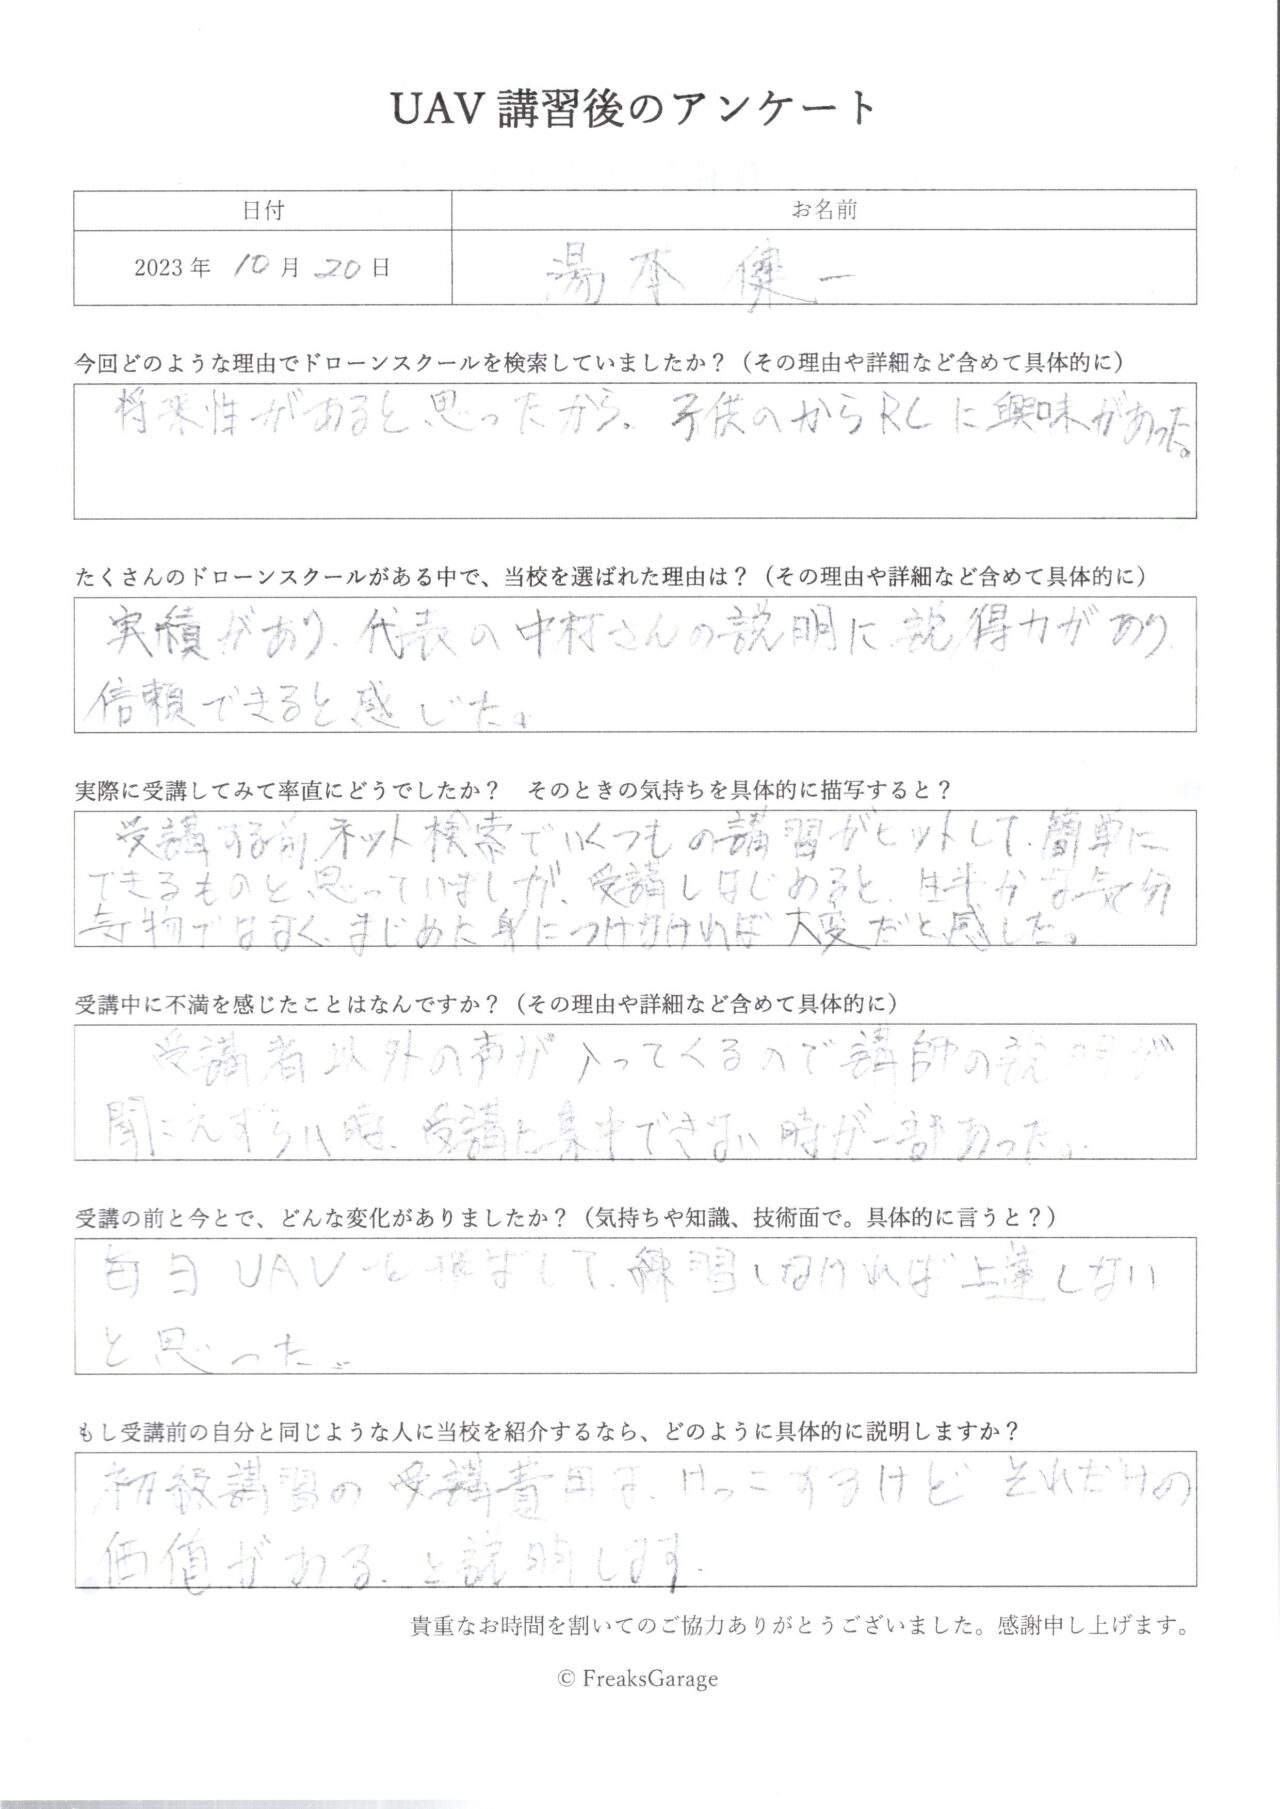 UAV 講習後のアンケート
日付 お名前
2023 年 10 月 20 日 湯本 健一
今回どのような理由でドローンスクールを検索していましたか？（その理由や詳細など含めて具体的に）
将来性があると思ったから。子供のからRCに興味があった。
たくさんのドローンスクールがある中で、当校を選ばれた理由は？（その理由や詳細など含めて具体的に）
実績があり、代表の中村さんの説明に説得力があり
信頼できると感じた。
実際に受講してみて率直にどうでしたか？　そのときの気持ちを具体的に描写すると？
受講する前ネット検索でいくつもの講習がヒットして、簡単に
できるものと思っていましが、受講しはじめると、生半かな気分
ではなく、まじめに身につけなければ大変だと感した。
受講中に不満を感じたことはなんですか？（その理由や詳細など含めて具体的に）
受講者以外の声が入ってくるので講師の説明が
聞こえずらい時、受講に集中できない時が一部あった。
受講の前と今とで、どんな変化がありましたか？（気持ちや知識、技術面で。具体的に言うと？）
毎日UAVを飛ばして、練習しなければ上達しない
と思った。
もし受講前の自分と同じような人に当校を紹介するなら、どのように具体的に説明しますか？
初級講習の受講費用は、けっこするけどそれだけの
価値がある、と説明します。
貴重なお時間を割いてのご協力ありがとうございました。感謝申し上げます。
© FreaksGarage